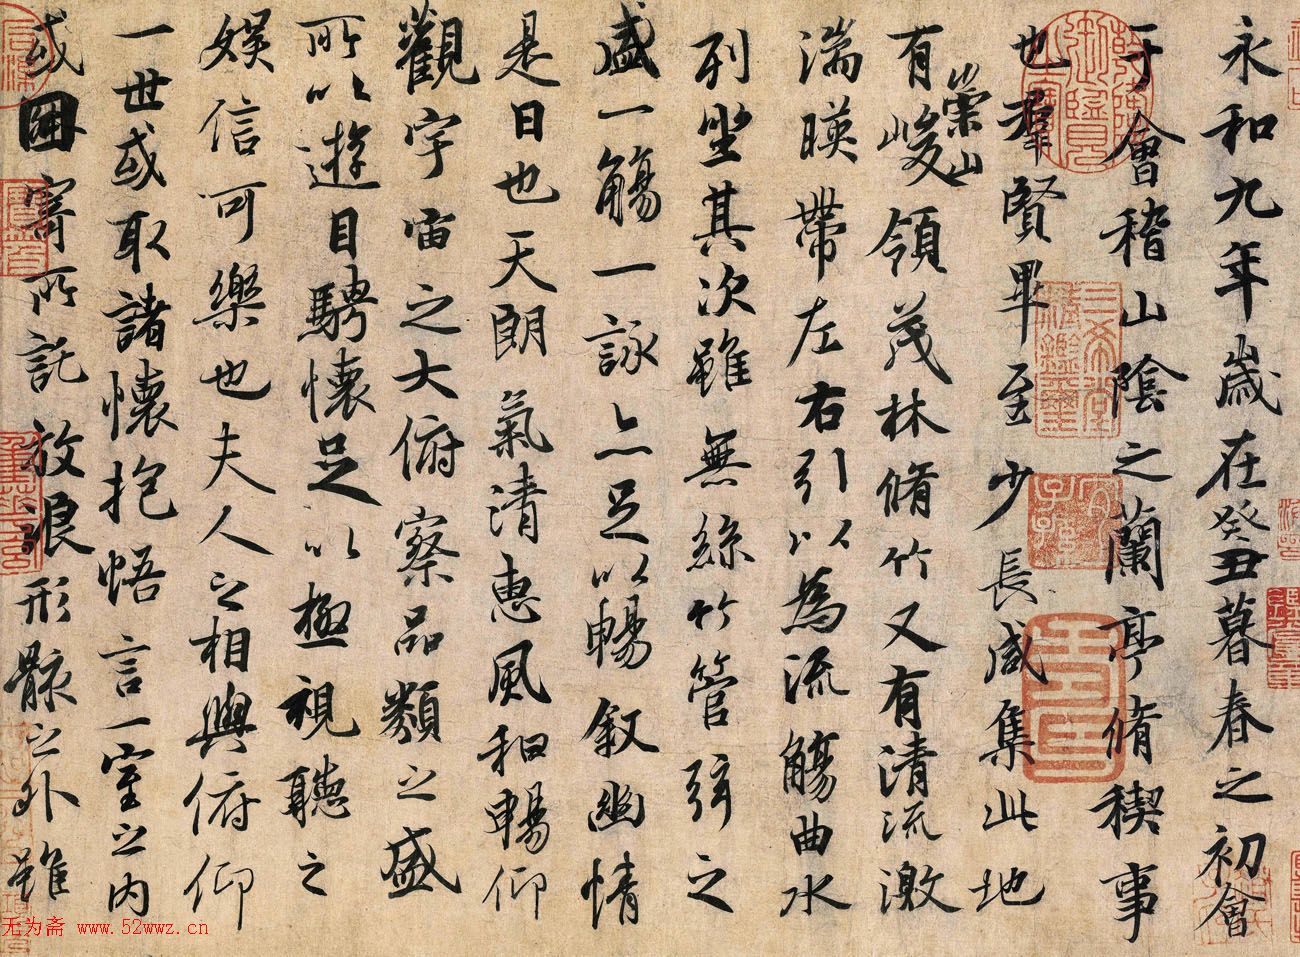 永和九年歲在癸丑暮春之初會
于會稽山陰之蘭亭脩稧事
也羣賢畢至少長咸集此地
有崇山峻領茂林脩竹又有清流激
湍暎帶左右引以為流觴曲水
列坐其次雖無絲竹管弦之
盛一觴一詠亦足以暢叙幽情
是日也天朗氣清惠風和暢仰
觀宇宙之大俯察品類之盛
所以遊目騁懷足以極視聽之
娛信可樂也夫人之相與俯仰
一世或取諸懷抱悟言一室之內
或因寄所託放浪形骸之外雖
无为斋 www.52wwz.cn